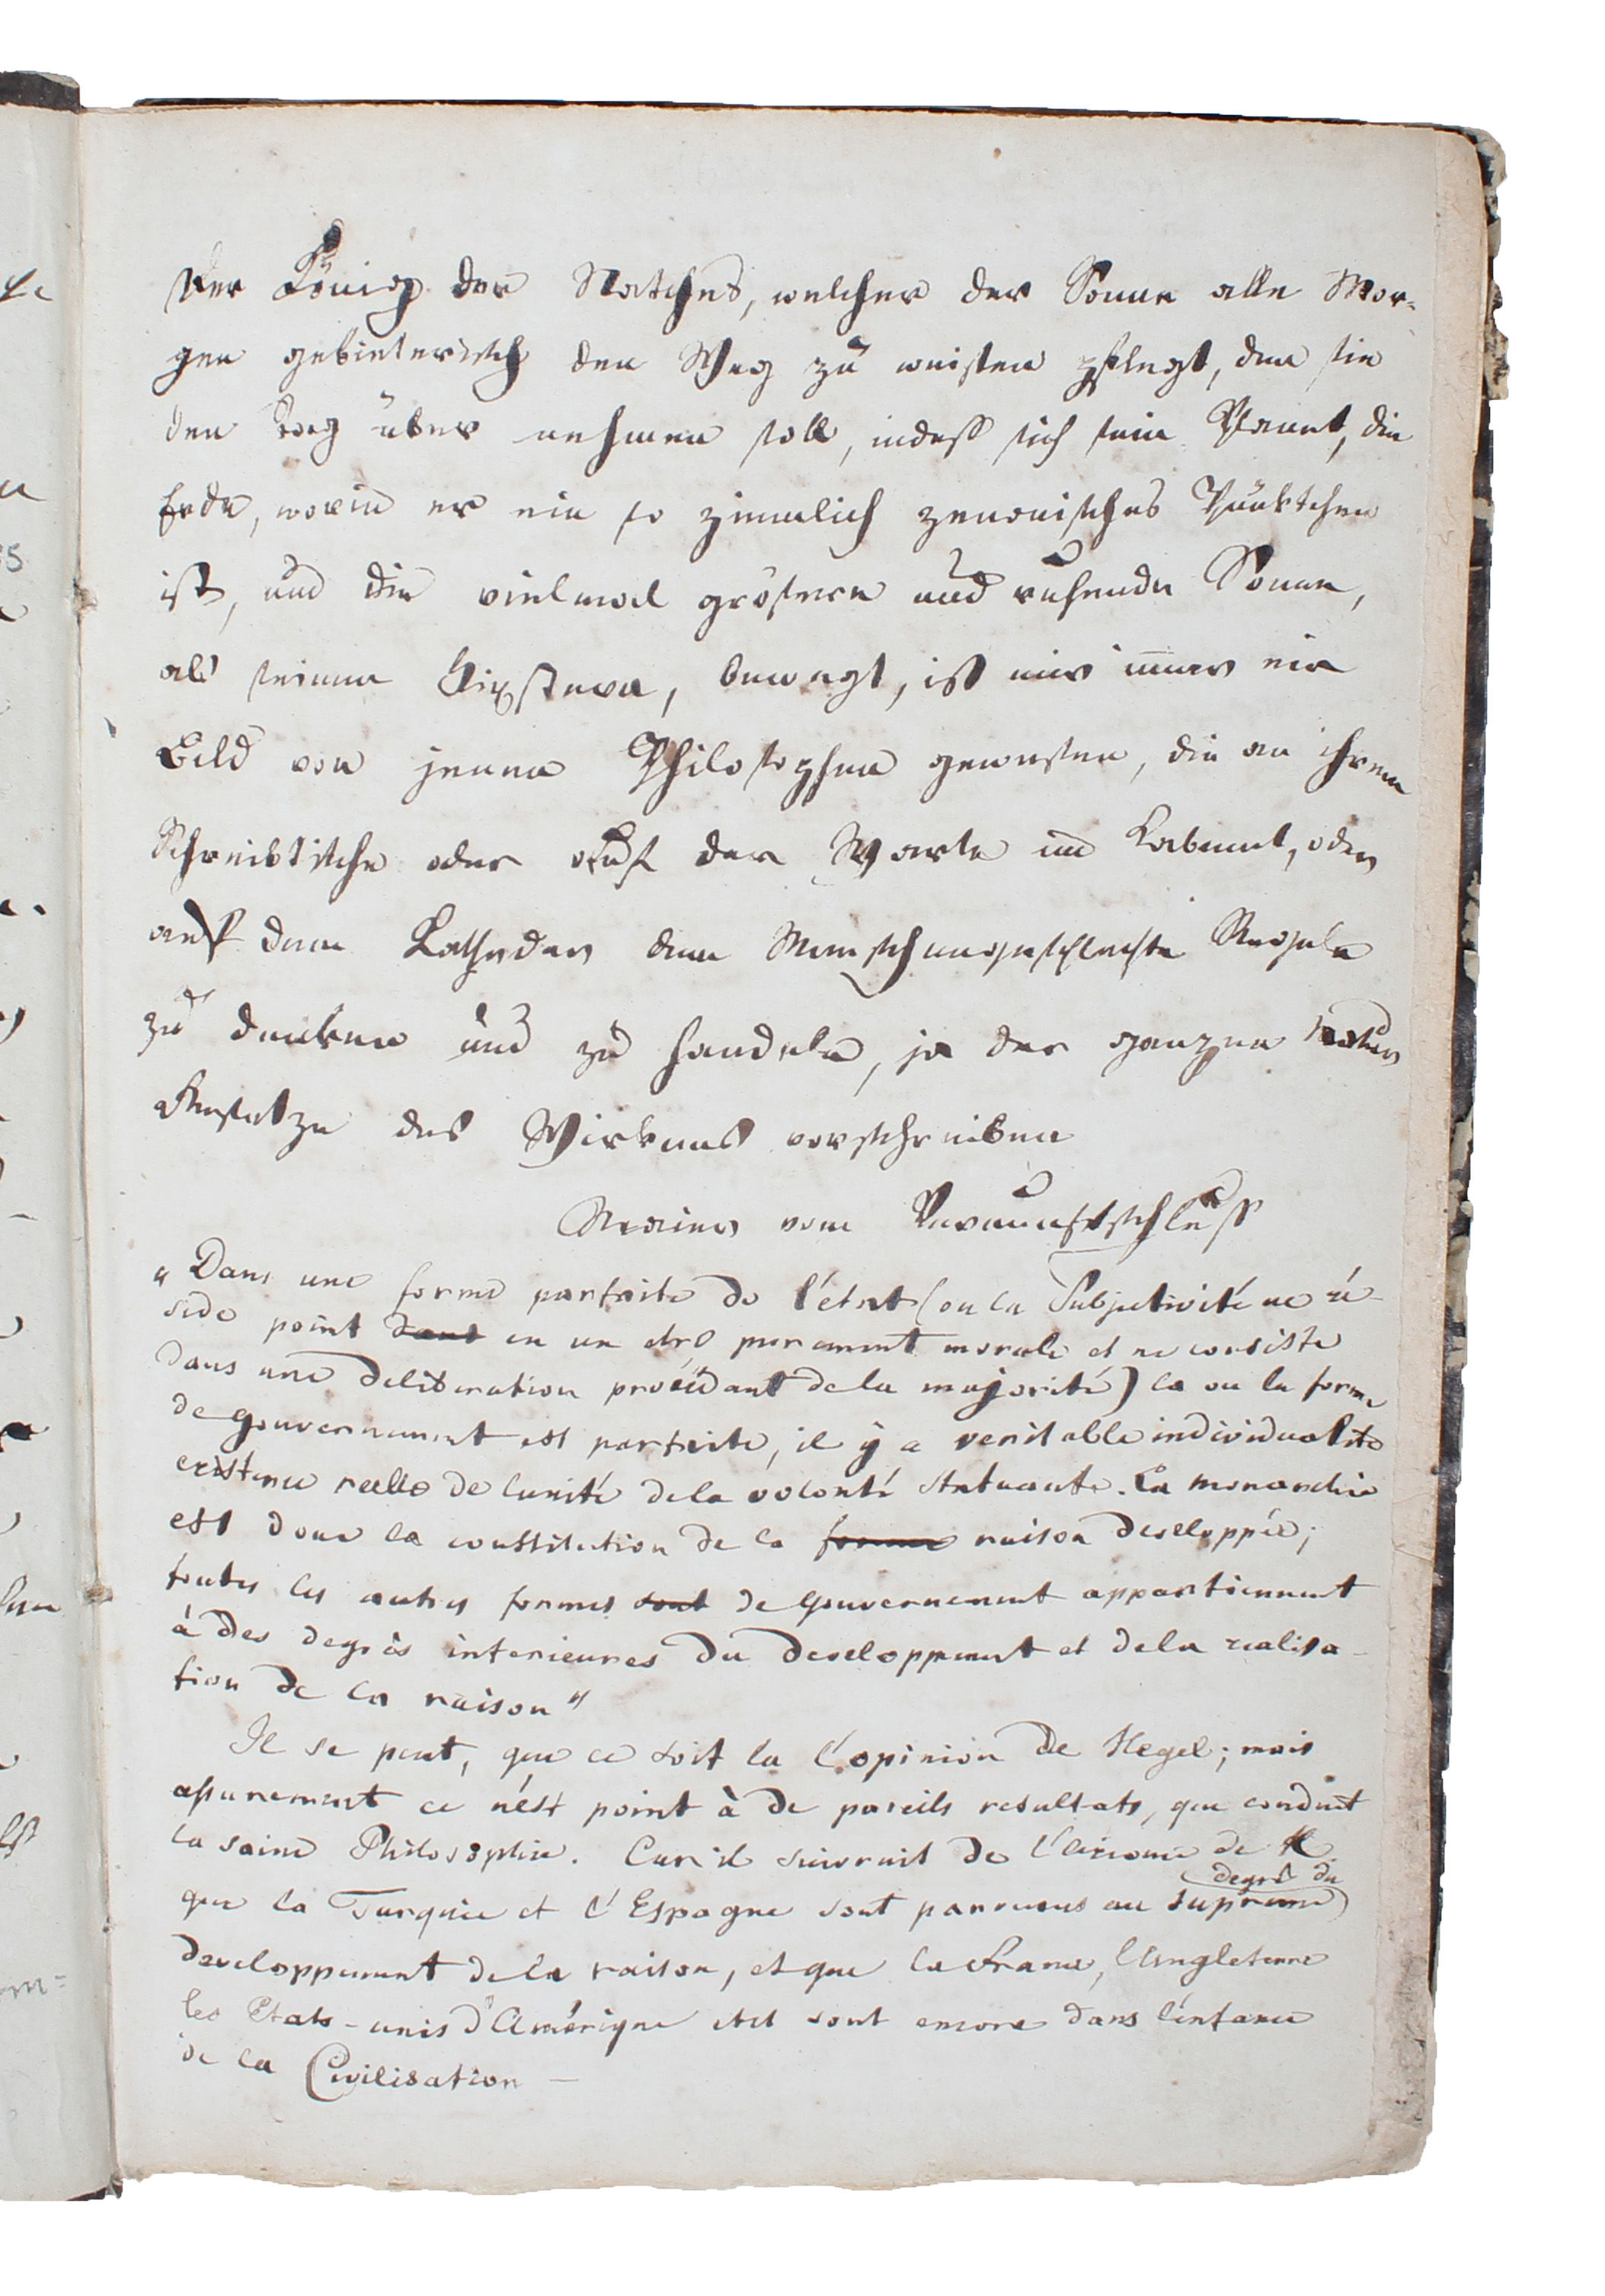 Der König der Natches, welcher der Sonne alle Mor-
gen gebieterisch den Weg zu weisen pflegt, den sie
den Tag über nehmen soll, indeß sich sein Planet, die
Erde, worin er ein so ziemlich zenonisches Pünktchen
ist, und die vielmal grösere und ruhende Sonne,
als seinen Fixstern, bewegt, ist mir immer ein
Bild von jenen Philosophen gewesen, die an ihrem
Schreibtische oder auf der Warte im Kabinet, oder
auf dem Katheder dem Menschengeschlechte Regeln
zu denken und zu handeln, ja der ganzen Natur
Gesetze des Wirkens vorschreiben
vom Vernunftschluß
"Dans une forme parfaite de l'état (ou la Subjetivité ne ré-
side point dans en un etre purement morale et ne consiste
dans une deliberation procédant de la majorité) la ou la forme
de gouvernement est parfaite, il y a veritable individualité
existence reelle de l'unité de la volonté statuante. La monarchie
est donc la constitution de la forme raison developpée;
toutes les autres formes sont de gouvernement appartiennent
à des degrès interieures du developpement et de la realisa-
tion de la raison"
Il se peut, que ce soit la l'opinion de Hegel; mais
assurement ce n'est point à de pareils resultats, que conduit
la saine Philosophie. Car il suivrait de l'axiome de H.
degré du
que la Turquie et l'Espagne sont parvenus au supreme
developpement de la raison, et que la France, l'Angleterre
les Etats-unis d'Amérique etct sont encore dans l'enfance
de la Civilisation —